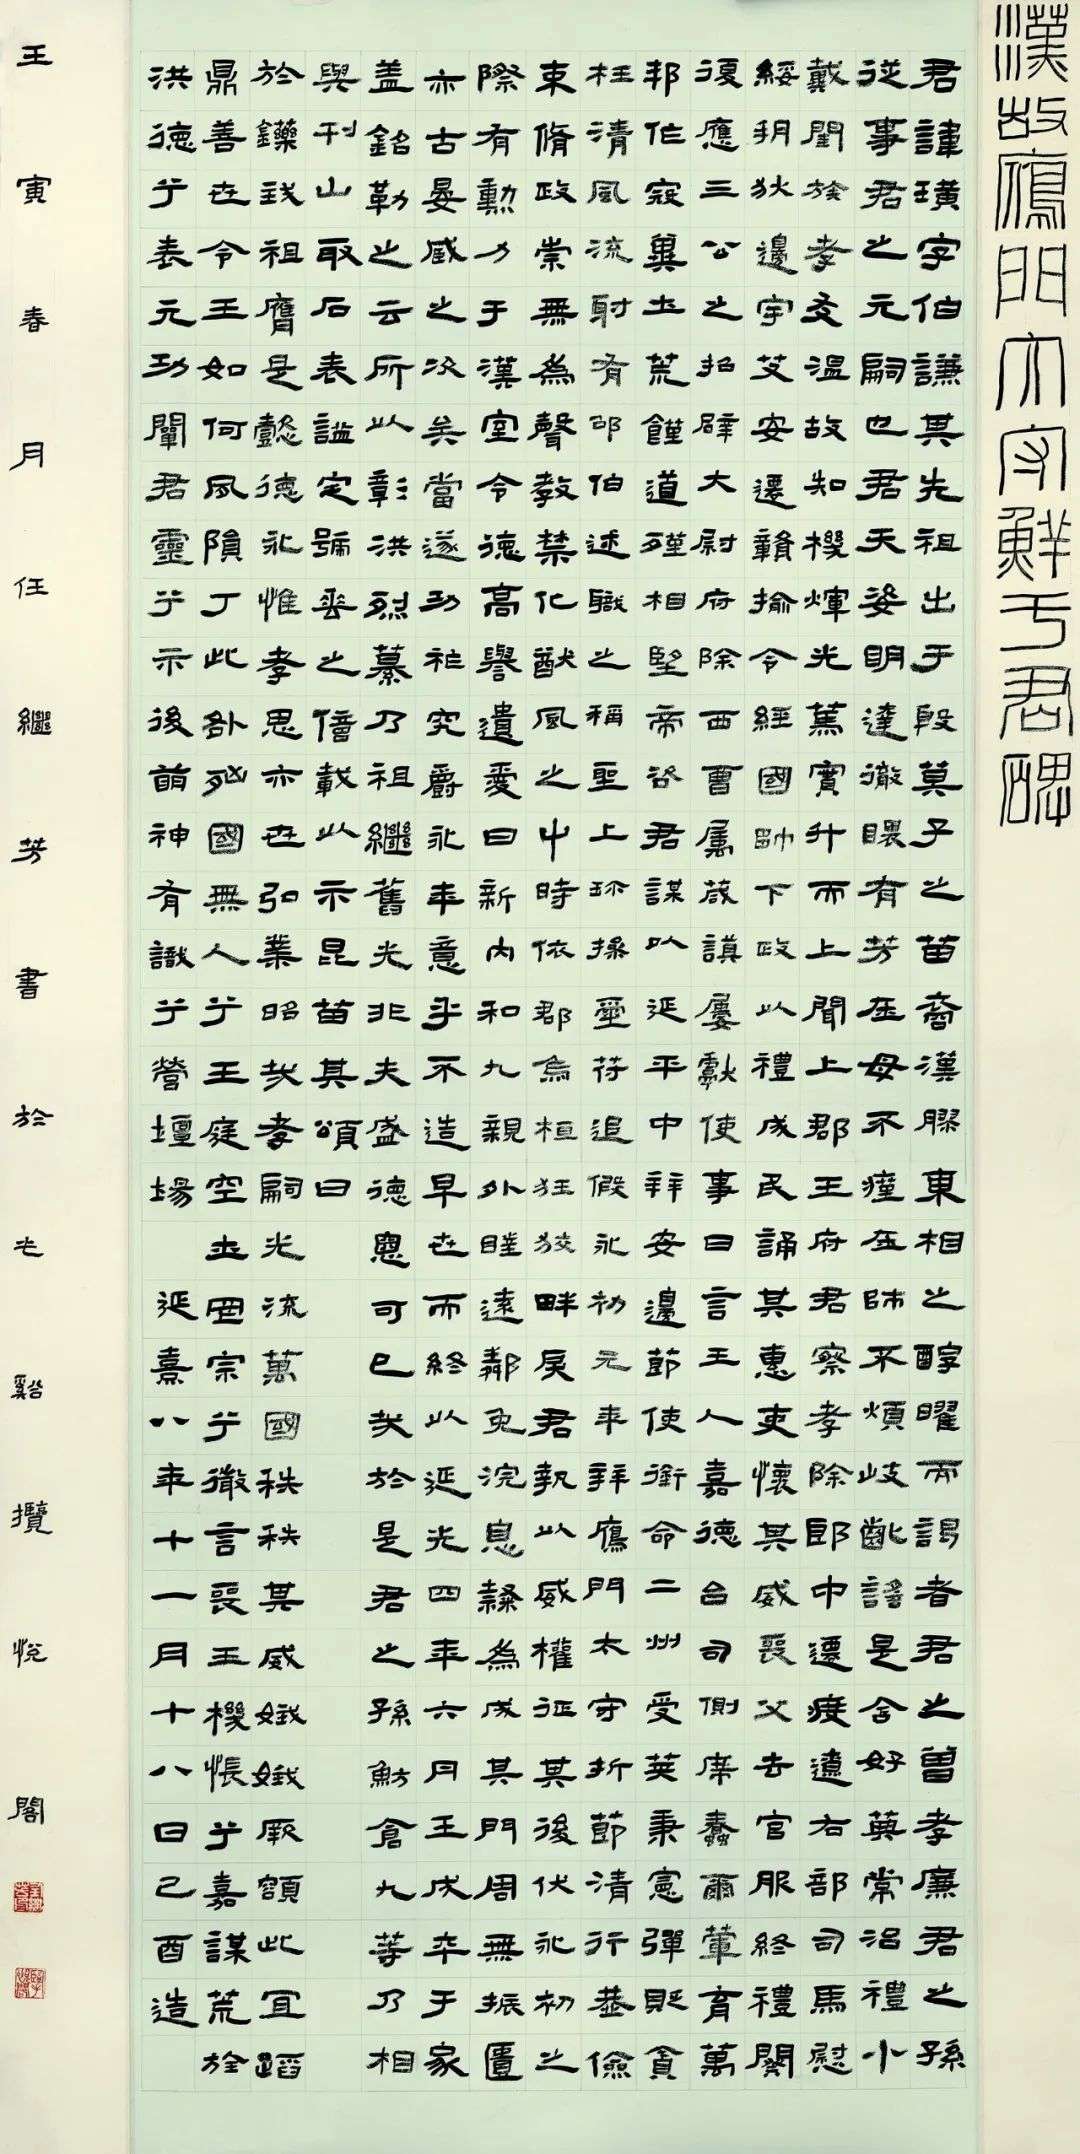 漢故鴈門太守鮮于君碑
君諱璜字伯謙其先祖出于殷萁子之苗裔漢膠東相之醇曜而謁者君之曾孝廉君之孫
從事君之元嗣也君天姿明達徹瞡有芳在母不瘇在師不煩岐齔謠是含好典常治禮小
戴閨族孝友溫故知機煇光篤實升而上聞上郡王府君察孝除郎中遷度遼右部司馬慰
綏朔狄邊宇艾安遷贛揄令經國帥下政以禮成民誦其惠吏懷其威喪父去官服終禮闋
復應三公之招辟大尉府除西曹屬歲謨屢獻使事日言王人嘉德台司側席蠢爾葷育萬
邦作寇冀土荒饉道殣相望帝咨君謀以延平中拜安邊節使銜命二州受莢秉憲彈貶貪
枉清風流射有邵伯述職之稱聖上珍操璽符追假永初元年拜鴈門太守折節清行恭儉
束脩政崇無為聲教禁化猷風之中時依郡烏桓狂狡畔戾君執以威權征其後伏永初之
際有勳力于漢室令德高譽遺愛日新內和九親外睦遠鄰免浣息隸為成其門周無振匱
亦古晏臧之次矣當遂功祚究爵永年意乎不造早世而終以延光四年六月壬戌卒于家
盖銘勒之云所以彰洪烈纂乃祖繼舊先非夫盛德惡可已哉於是君之孫魴倉九等乃相
與刊山取石表謚定號垂之億載以示昆苗其頌曰
於鑠我祖膺是懿德永惟孝思亦世弘業昭哉孝嗣光流萬國秩秩其威娥娥厥頟此宜蹈
鼎善世令王如何夙隕丁此咎殃國無人兮王庭空士罔宗兮徽言喪王機悵兮嘉謀荒於
洪德兮表元功闡君靈兮示後萌神有識兮營壇場 延熹八年十一月十八日己酉造
壬寅春月任繼芳書於光谿攬悅閣